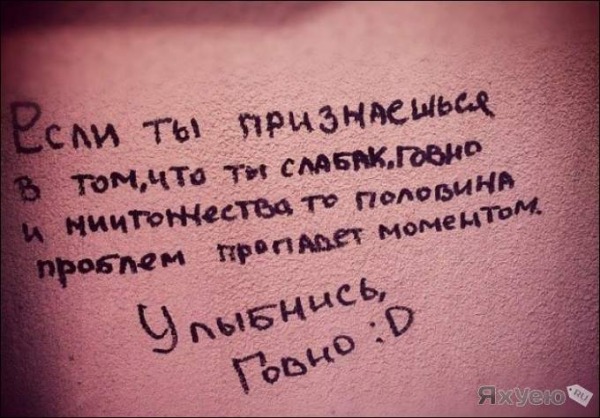 Если ты признаешься
в том, что ты слабак, говно
и ничтожества, то половина
проблем пропадет моментом.
Улыбнись,
Говно :D
ЯхУею.RU